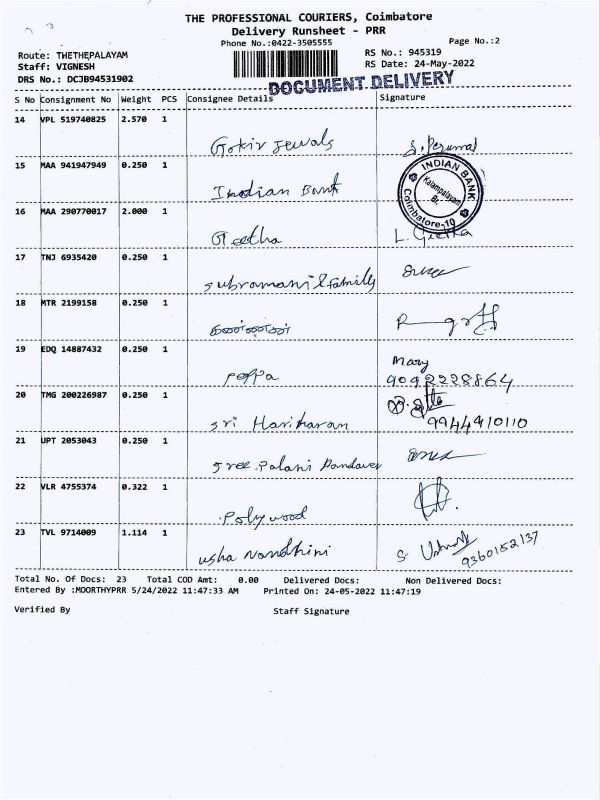 THE PROFESSIONAL COURIERS, Coimbatore
Delivery Runsheet - PRR
Phone No.:0422-3505555
Page No.:2
Route: THETHEPALAYAM
RS No.: 945319
Staff: VIGNESH
RS Date: 24-May-2022
DRS No.: DCJB94531902
DOCUMENT DELIVERY
S No Consignment No Weight PCS Consignee Details Signature
14 VPL 519740825 2.570 1
Gokir Jewals S. Perumal
15 MAA 941947949 0.250 1
INDIAN BANK
Kalampalayam
Br.
Coimbatore-10
Indian Bank
16 MAA 290770017 2.000 1
Geetha L. Geetha
17 TNJ 6935420 0.250 1
Subramani & family
18 MTR 2199158 0.250 1
19 EDQ 14887432 0.250 1
Mary
Peppa 9092228864
20 TMG 200226987 0.250 1
Sri Hariharan 9944910110
21 UPT 2053043 0.250 1
Sree Palani Pandaver
22 VLR 4755374 0.322 1
Polywood
23 TVL 9714009 1.114 1
Usha Nandhini S 9360152137
Total No. Of Docs: 23 Total COD Amt: 0.00 Delivered Docs: Non Delivered Docs:
Entered By :MOORTHYPRR 5/24/2022 11:47:33 AM Printed On: 24-05-2022 11:47:19
Verified By Staff Signature